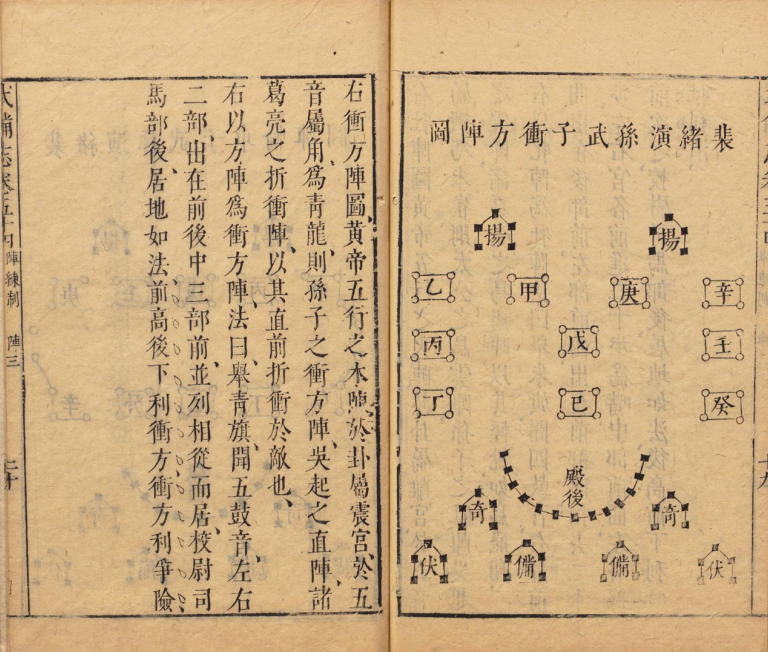 裴緒演孫武子衝方陣圖
揚 揚
辛 庚 甲 乙
壬 戊 丙
癸 己 丁
殿後
奇 奇
伏 備 備 伏
右衝方陣圖、黃帝五行之木陣、於卦屬震宮、於五
音屬角、爲青龍、則孫子之衝方陣、吳起之直陣、諸
葛亮之折衝陣、以其直前折衝於敵也、
右以方陣爲衝方陣、法曰、舉青旗、聞五鼓音、左右
二部出在前後中三部前、並列相從而居、校尉司
馬部後、居地如法前高後下利衝方衝方利爭險、
武備志卷五十四 陣練制 陣三 二十